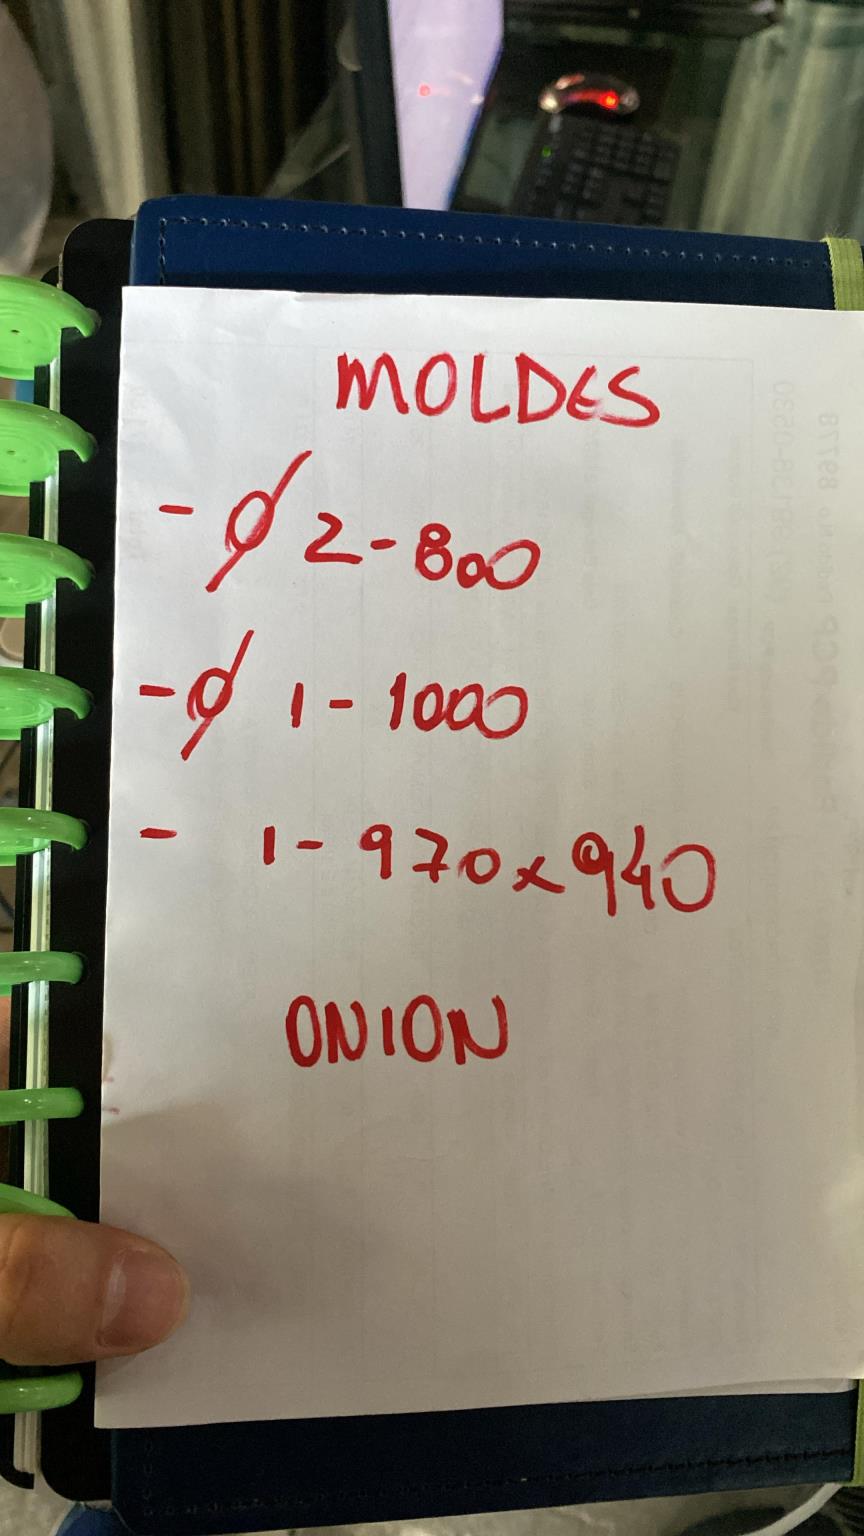 MOLDES
- Ø 2-800
- Ø 1-1000
- 1-970x940
ONION